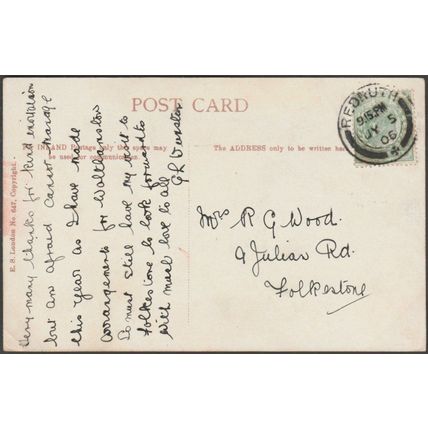 POST CARD
FOR INLAND Postage only this space may
be used for communication.
The ADDRESS only to be written here
E. S. London No. 647, Copyright.
REDRUTH
9.15 PM
JY 5
06
Very many thanks for kind invitation
but am afraid cannot manage
this year as I have made
arrangements for Walthamstow
So must still have my visit to
Folkestone to look forward to
With much love to all
Mrs R G Wood.
9 Julian Rd.
Folkestone